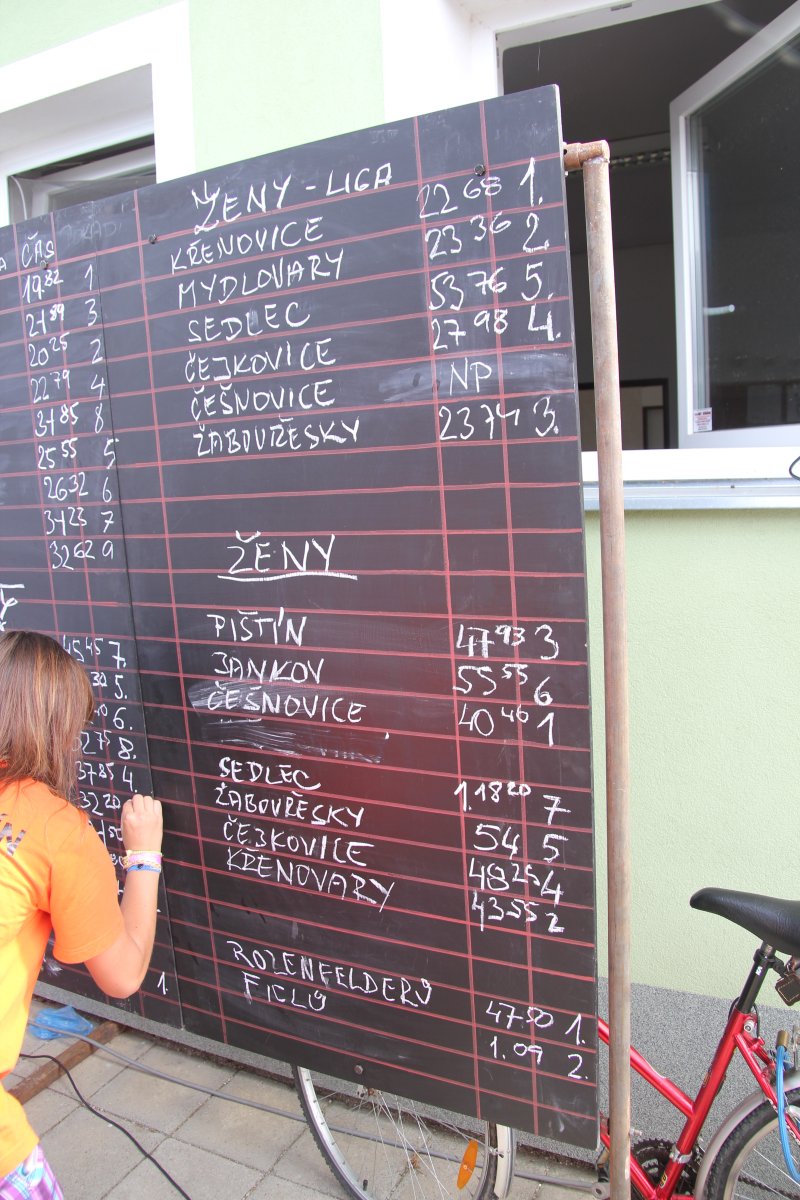 ČAS
19 82 1
21 89 3
20 25 2
22 79 4
31 85 8
25 55 5
26 32 6
34 23 7
32 62 9
45 45 7.
5.
6.
75 8.
37 85 4.
32 20
1.
ŽENY - LIGA
KŘENOVICE 22 68 1.
MYDLOVARY 23 36 2.
SEDLEC 53 76 5.
ČEJKOVICE 27 98 4.
ČEŠNOVICE NP
ŽABOVŘESKY 23 74 3.
ŽENY
PIŠTÍN 47 93 3
JANKOV 55 55 6
ČEŠNOVICE 40 46 1
SEDLEC 1.18 20 7
ŽABOVŘESKY 54 5
ČEJKOVICE 48 25 4
KŘENOVARY 43 55 2
ROZENFELDERŮ 47 50 1.
FICLŮ 1.09 2.